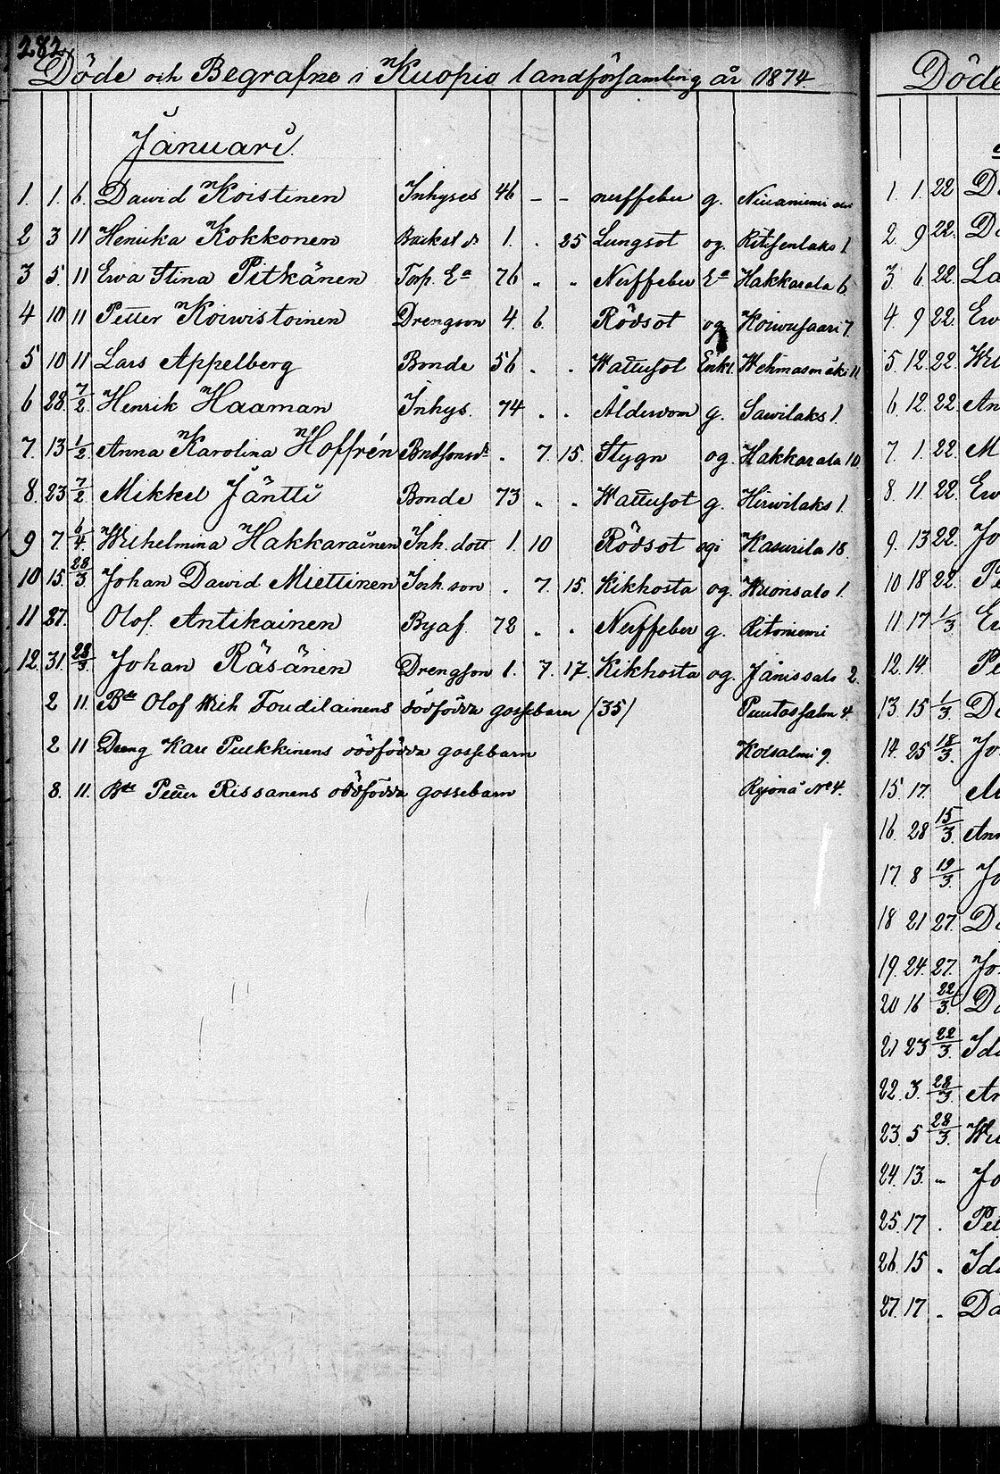 282
Döde och Begrafne i Kuopio landförsamling år 1874.
Januari.
1. 1. 6. Dawid Koistinen Inhyses 46 - - nerffeber g.
2 3 11 Henrika Kokkonen 1. . 25 Lungsot og. Ritisenlaks 1
3 5. 11 Ewa Stina Pitkänen Torp. Ea 76 . . Nerffeber Ea Hakkarala 6
4 10 11 Petter Koiwistoinen Drengson 4. 6. Rödsot og Koiwusaari 7.
5 10 11 Lars Appelberg Bonde 56 . . Wattusot Enkl. Wehmasmäki 11
6 28. 7/2 Henrik Haaman Inhys. 74 . . Ålderdom g. Sawilaks 1.
7. 13 1/2 Anna Karolina Hoffrén Bondsonsdr . 7. 15. Slygn og. Hakkarala 10
8. 23 7/2 Mikkel Jäntti Bonde 73 . . Wattusot g. Hirwilaks 1.
9 7. 6/4 Wilhelmina Hakkarainen Inh. dott 1. 10 Rödsot og Kasurila 18.
10 15. 28/3 Johan Dawid Miettinen Inh. son . 7. 15. Kikhosta og. Wuonsalo 1.
11 27. Olof Antikainen Byaf. 78 . . Nerffeber g. Ritoniemi
12. 31. 28/3. Johan Räsänen Drengson 1. 7. 17. Kikhosta og. Jänissalo 2.
2 11. Bde Olof Wilh Toudilainens dödfödda gossebarn (35) Puutossalm 4.
2 11 Dreng Karl Pulkkinens dödfödda gossebarn Kotsalmi 9.
8. 11. Bde Petter Rissanens dödfödda gossebarn No 4.
Döde
1. 1. 22 D
2. 9 22. D
3. 6. 22. La
4. 9 22. Ew
5. 12. 22. Wil
6. 12. 22. An
7 1. 22. M
8. 11. 22. Ew
9. 13 22. Jo
10 18 22. P
11. 17 1/3 Er
12. 14. Pe
13. 15 1/3 D
14. 25 18/3. Jo
15 17.
16. 28 15/3 Ann
17. 8 19/3. Jo
18 21 27. D
19. 24. 27. Jo
20 16 22/3. D
21 23 22/3. Ida
22. 3. 28/3. An
23. 5 28/3. Wil
24. 13. - Jo
25. 17 . Pet
26. 15 . Ida
27. 17 . Da